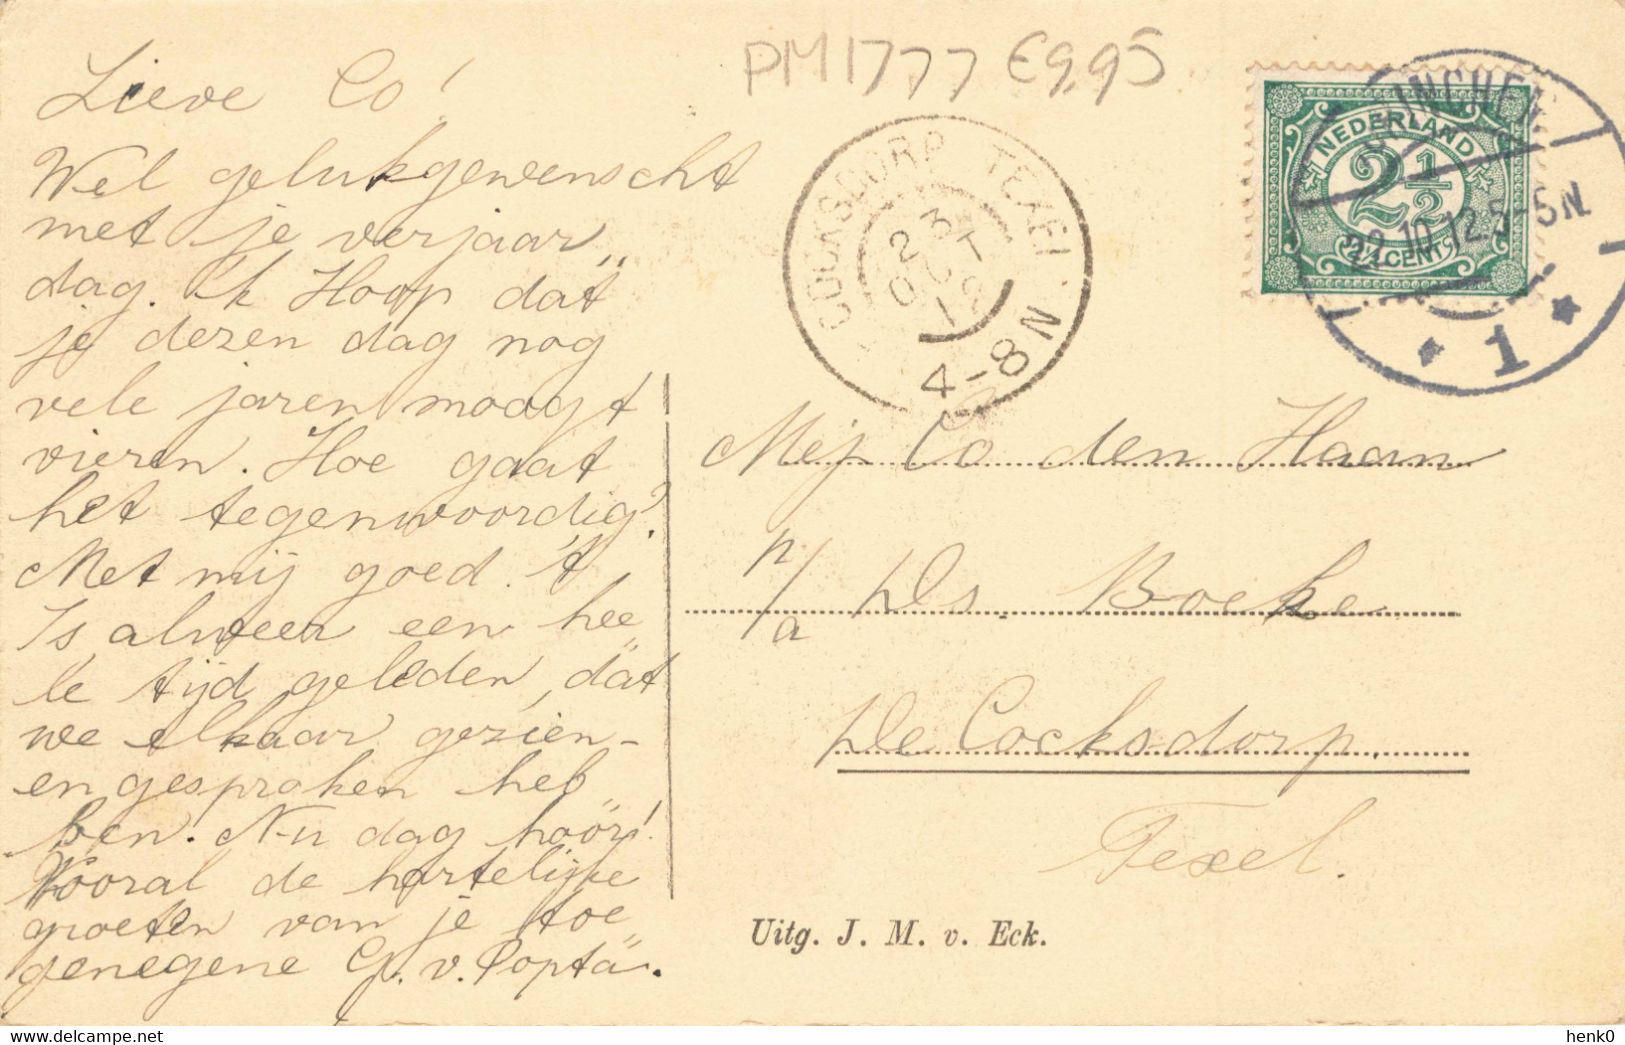 PM1777 €9,95
Lieve Co!
Wel gelukgewenscht
met je verjaar„
dag. 'k Hoop dat
je dezen dag nog
vele jaren moogt
vieren. Hoe gaat
het tegenwoordig?
Met mij goed. 't
Is alweer een hee„
le tijd geleden, dat
we elkaar gezien-
en gesproken heb„
ben. Nu dag hoor!
Vooral de hartelijke
groeten van je toe„
genegene G. v. Popta.
COCKSDORP TEXEL
23
OCT
12
4-8N
NEDERLAND
2½
2½ CENT
22.10.12.5-5N
1
Mej Co den Haan
p/a Ds. Boeke
De Cocksdorp.
Texel.
Uitg. J. M. v. Eck.
henk0